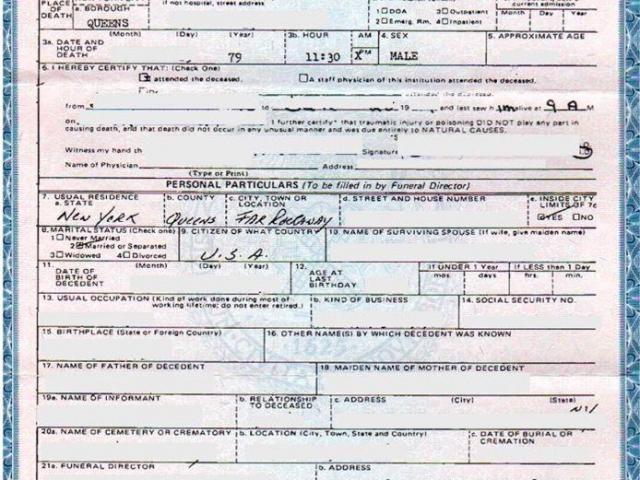 PLACE OF DEATH a. BOROUGH QUEENS
if not hospital, street address
current admission
1 DOA 3 Outpatient
2 Emerg. Rm. 4 Inpatient
Month Day Year
3a. DATE AND HOUR OF DEATH (Month) (Day) (Year) 79
3b. HOUR 11:30 AM X PM
4. SEX MALE
5. APPROXIMATE AGE
6. I HEREBY CERTIFY THAT: (Check One)
attended the deceased. A staff physician of this institution attended the deceased.
attended the deceased
from to 19 and last saw him alive at 9 A M
on, I further certify that traumatic injury or poisoning DID NOT play any part in
causing death, and that death did not occur in any unusual manner and was due entirely to NATURAL CAUSES.
Witness my hand th Signature
Name of Physician Address
(Type or Print)
PERSONAL PARTICULARS (To be filled in by Funeral Director)
7. USUAL RESIDENCE a. STATE New York
b. COUNTY Queens
c. CITY, TOWN OR LOCATION Far Rockaway
d. STREET AND HOUSE NUMBER
e. INSIDE CITY LIMITS OF 7c YES NO
8. MARITAL STATUS (Check one)
1 Never Married
2 Married or Separated
3 Widowed 4 Divorced
9. CITIZEN OF WHAT COUNTRY U.S.A.
10. NAME OF SURVIVING SPOUSE (If wife, give maiden name)
11. DATE OF BIRTH OF DECEDENT (Month) (Day) (Year)
12. AGE AT LAST BIRTHDAY
If UNDER 1 Year mos. days
If LESS than 1 Day hrs. min.
13. USUAL OCCUPATION (Kind of work done during most of working lifetime; do not enter retired.)
b. KIND OF BUSINESS
14. SOCIAL SECURITY NO.
15. BIRTHPLACE (State or Foreign Country)
16. OTHER NAME(S) BY WHICH DECEDENT WAS KNOWN
17. NAME OF FATHER OF DECEDENT
18. MAIDEN NAME OF MOTHER OF DECEDENT
19a. NAME OF INFORMANT
b. RELATIONSHIP TO DECEASED
c. ADDRESS (City) (State)
NY
20a. NAME OF CEMETERY OR CREMATORY
b. LOCATION (City, Town, State and Country)
c. DATE OF BURIAL OR CREMATION
21a. FUNERAL DIRECTOR
b. ADDRESS